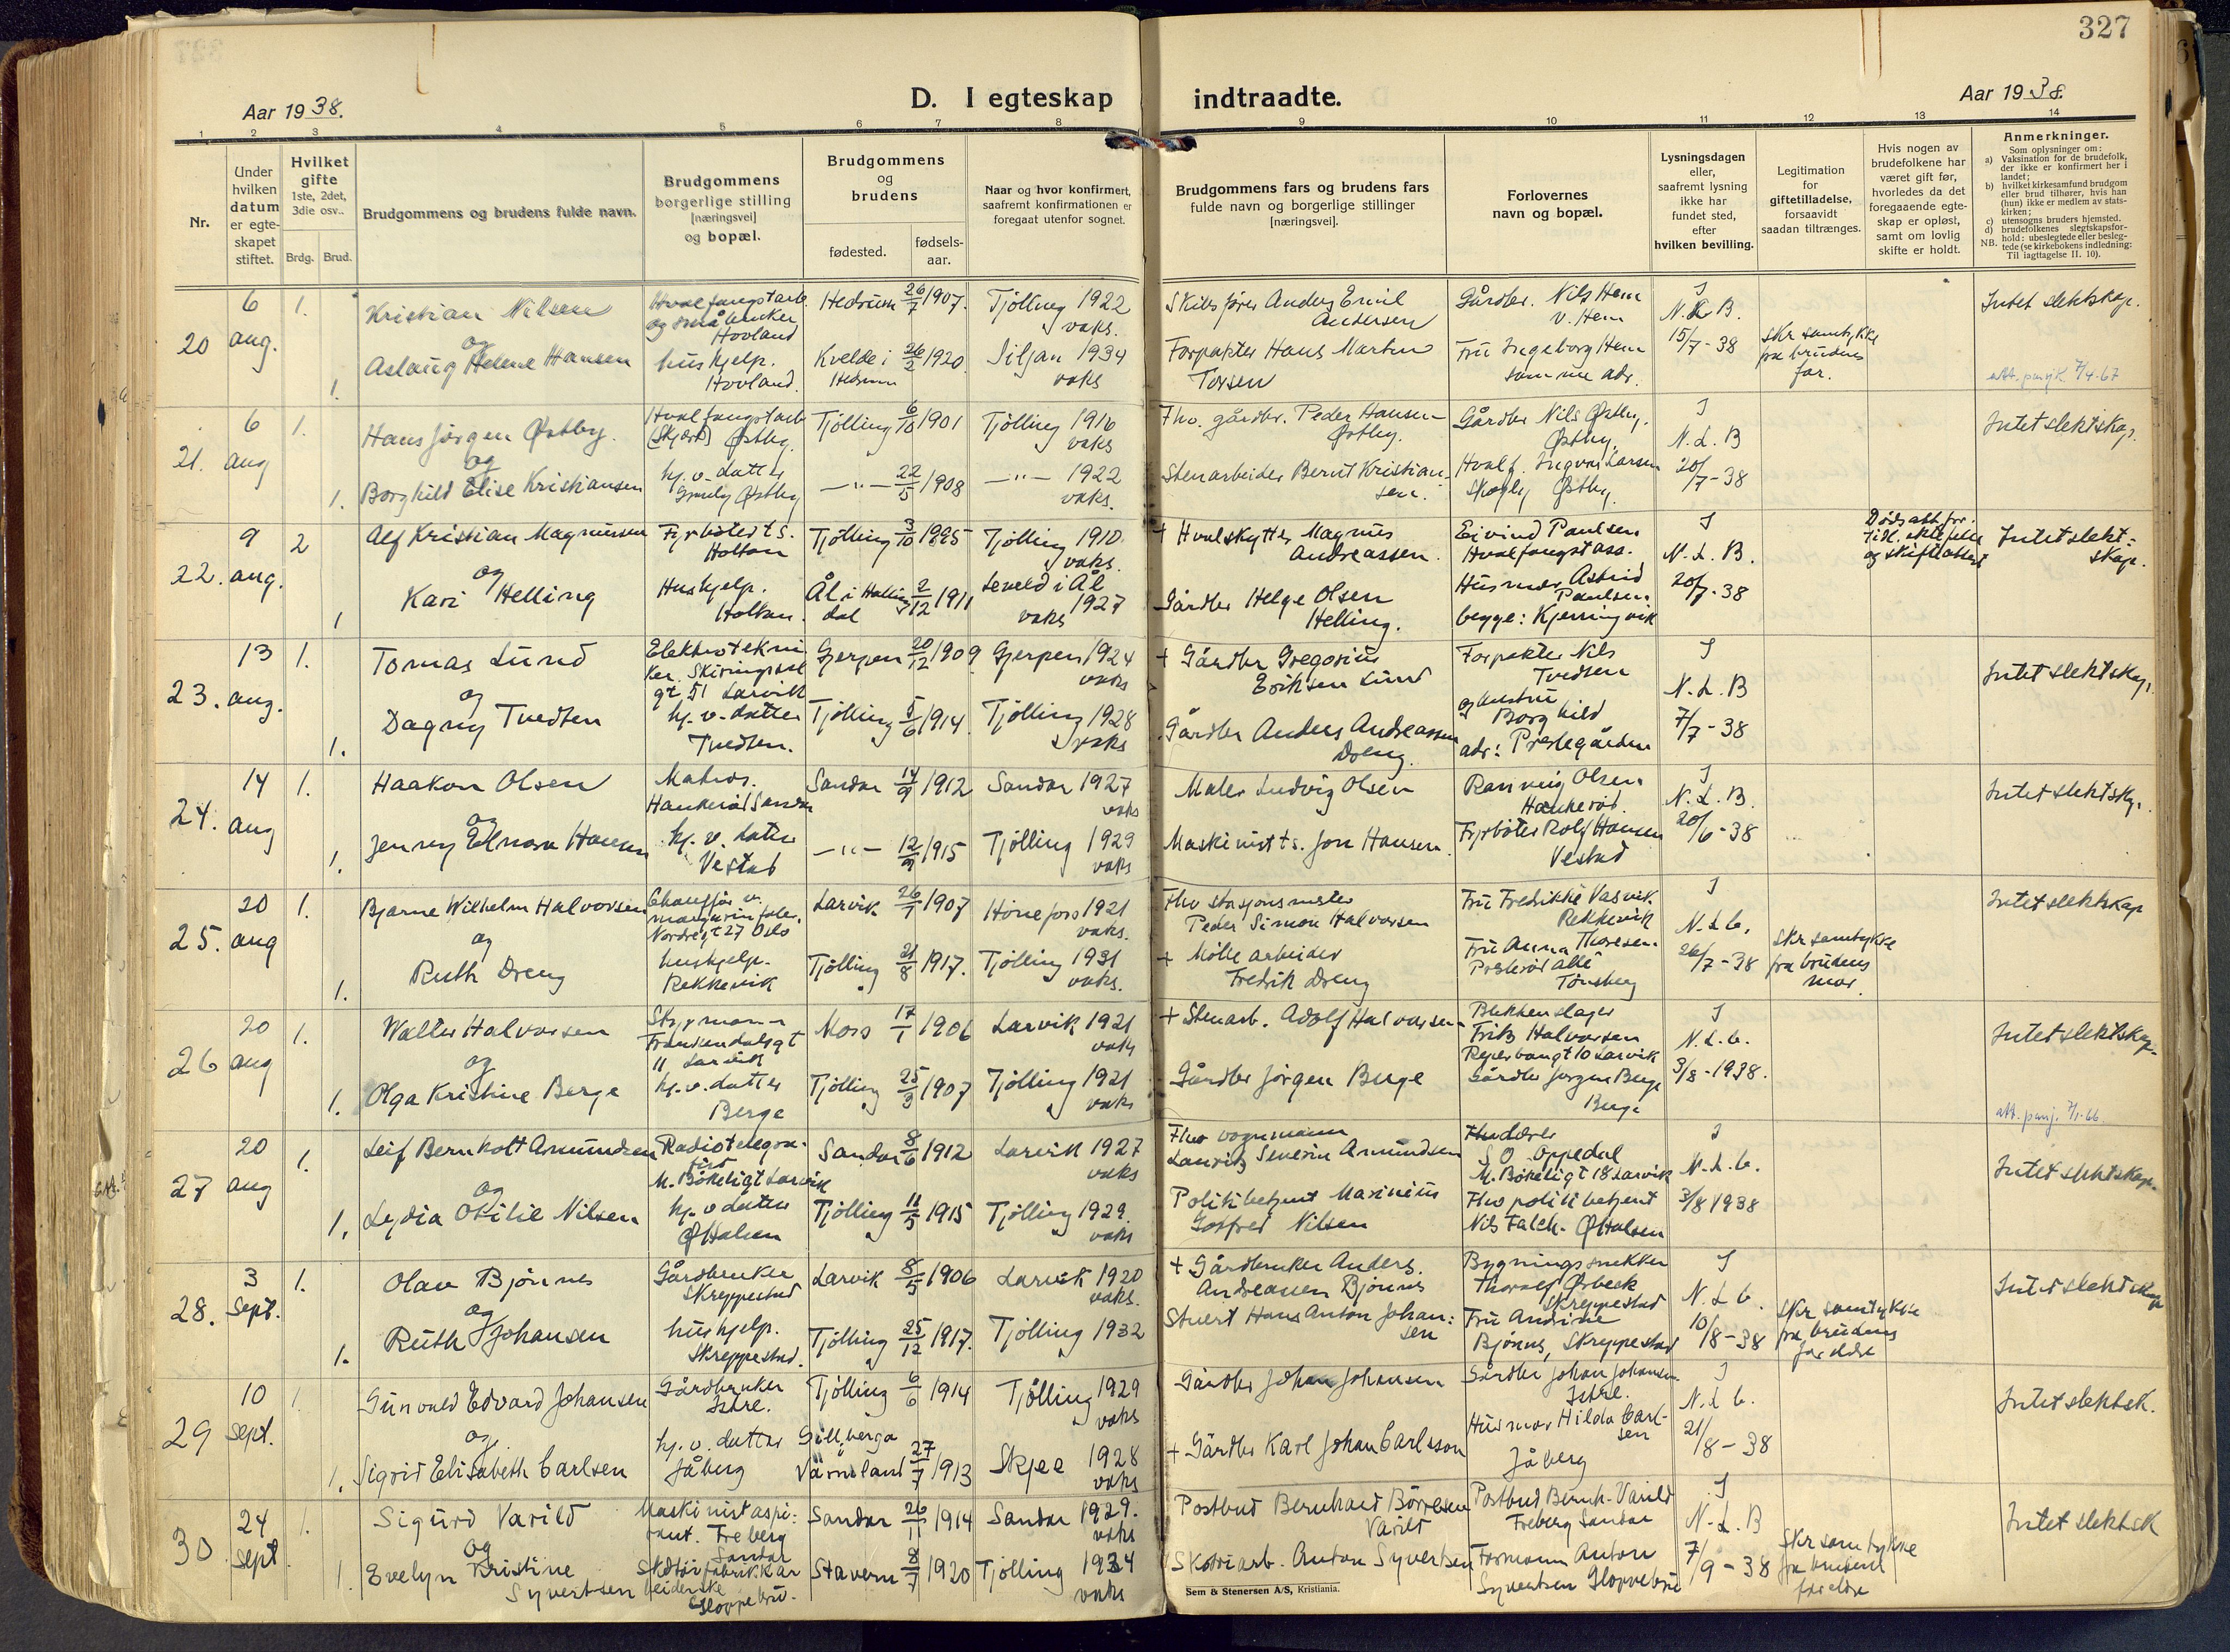 327
Aar 1938.
D. I egteskap indtraadte.
Aar 1938.
1 2 3 4 5 6 7 8 9 10 11 12 13 14
Nr.
Under
hvilken
datum
er egte-
skapet
stiftet.
Hvilket
gifte
1ste, 2det,
3die osv..
Brdg. Brud.
Brudgommens og brudens fulde navn.
Brudgommens
borgerlige stilling
[næringsvei]
og bopæl.
Brudgommens
og
brudens
fødested.
fødsels-
aar.
Naar og hvor konfirmert,
saafremt konfirmationen er
foregaat utenfor sognet.
Brudgommens fars og brudens fars
fulde navn og borgerlige stillinger
[næringsvei].
Forlovernes
navn og bopæl.
Lysningsdagen
eller,
saafremt lysning
ikke har
fundet sted,
efter
hvilken bevilling.
Legitimation
for
giftetilladelse,
forsaavidt
saadan tiltrænges.
Hvis nogen av
brudefolkene har
været gift før,
hvorledes da det
foregaaende egte-
skap er opløst,
samt om lovlig
skifte er holdt.
Anmerkninger.
Som oplysninger om:
a) Vaksination for de brudefolk,
der ikke er konfirmert her i
landet;
b) hvilket kirkesamfund brudgom
eller brud tilhører, hvis han
(hun) ikke er medlem av stats-
kirken;
c) utensogns bruders hjemsted.
d) brudefolkenes slegtskapsfor-
hold: ubeslegtede eller besleg-
NB. tede (se kirkebokens indledning:
Til iagttagelse II. 10).
20
6
aug.
1.
1.
Kristian Nilsen
og
Aslaug Helene Hansen
Hvalfangstarb.
og småbruker
Hovland
hushjelp.
Hovland.
Hedrum 26/7 1907.
Kvelde i 26/2 1920
Hedrum
Tjölling 1922
vaks.
Siljan 1934
vaks
Skibsförer Anders Emil
Andersen
Forpakter Hans Martin
Torsen
Gårdbr. Nils Hem
v. Hem
Fru Ingeborg Hem
samme adr.
I
N.L.B.
15/7-38
Skr samtykke
fra brudens
far.
Intet slektskap.
7/4-67
21.
6
aug
1.
1.
Hans Jörgen Østby.
og
Borghild Elise Kristiansen
Hvalfangstarb
Østby
hj.v. datter
Østby
Tjölling 6/10 1901
—"— 22/5 1908
Tjölling 1916
vaks
—"— 1922
vaks.
Fhv. gårdbr. Peder Hansen
Østby.
Stenarbeider Bernt Kristian-
sen.
Gårdbr Nils Østby.
Østby.
Hvalf. Ingvar Larsen
Skogly Østby.
I
N.L.B
20/7-38
Intet slektskap.
22.
9
aug.
2
1
Alf Kristian Magnussen
og
Kari Helling
Fyrböter ts.
Holtan
Hushjelp.
Holtan.
Tjölling 3/10 1895
Ål i Halling 2/12 1911
dal
Tjölling 1910
vaks.
Leveld i Ål
vaks 1927
+ Hvalskytter Magnus
Andreassen.
Gårdbr Helge Olsen
Helling.
Eivind Paulsen
Hvalfangstass.
Husmor Astrid
Paulsen.
begge: Kjerringvik
I
N.L.B.
20/7-38
Dødsatt for
tidl. ektefelle
og skifteattest
Intet slekt-
skap.
23.
13
aug.
1.
1.
Tomas Lund
og
Dagny Tvedten
Elektrotekni
ker. Skiringssal
gt 51 Larvik
hj.v. datter
Tvedten.
Gjerpen 20/12 1909
Tjölling 5/6 1914
Gjerpen 1924
vaks
Tjölling 1928
vaks
+ Gårdbr Gregorius
Eriksen Lund
Gårdbr Anders Andreassen
Dreng.
Forpakter Nils
Tvedten
og hustru
Borghild
adr: Prestegården
I
N.L.B
7/7-38
Intet slektskap.
24.
14
aug
1.
1.
Haakon Olsen
og
Jenny Elnora Hansen
Matros.
Haukerød Sandar
hj.v. datter
Vestad
Sandar 14/9 1912
—"— 12/9 1915
Sandar 1927
vaks
Tjölling 1929
vaks
Maler Ludvig Olsen
Maskinist ts. Jon Hansen.
Rannveig Olsen
Haukerød.
Fyrböter Rolf Hansen
Vestad
I
N.L.B.
20/6-38
Intet slektskp.
25.
20
aug
1.
1.
Bjarne Wilhelm Halvorsen
og
Ruth Dreng
Chauffør v.
margarinfabr.
Nordregt 27 Oslo
hushjelp.
Rekkevik
Larvik 26/1 1907
Tjölling 21/8 1917.
Hönefoss 1921
vaks.
Tjölling 1931
vaks.
Fhv stasjonsmester
Peder Simon Halvorsen
+ Mölle arbeider
Fredrik Dreng
Fru Fredrikke Vasvik.
Rekkevik
Fru Anna Thoresen.
Presterød allé
Tönsberg
I
N.L.C.
26/7-38
Skr samtykke
fra brudens
mor.
Intet slektskap
26
20
aug
1.
1.
Walter Halvorsen
og
Olga Kristine Berge
Styrmann
Frankendalsgt
11 Larvik
hj.v. datter
Berge
Moss 17/1 1906
Tjölling 25/3 1907
Larvik 1921
vaks
Tjölling 1921
vaks
+ Stenarb. Adolf Halvorsen
Gårdbr Jörgen Berge
Blikkenslager
Fritz Halvorsen
Reperbangt 10 Larvik
Gårdbr Jørgen Berge
Berge
I
N.L.C.
3/8-1938.
Intet slektskap.
27
20
aug
1.
1.
Leif Bernholt Amundsen
og
Lydia Otilie Nilsen
Radiotelegra-
fist
M. Bökeligt Larvik
hj.v datter
Ø Halsen
Sandar 8/6 1912
Tjölling 11/5 1915
Larvik 1927
vaks
Tjölling 1929.
vaks
Fhv vognmann
Lauritz Severin Amundsen
Politibetjent Marinius
Gotfred Nilsen
S O Oppedal
M. Bökeligt 18 Larvik
Fhv politibetjent
Nils Falch. Ø Halsen
I
N.L.C.
3/8 1938
Intet slektskap.
28.
3
sept.
1.
1.
Olav Bjönnes
og
Ruth Johansen
Gårdbruker
Skreppestad
hushjelp.
Skreppestad.
Larvik 8/5 1906
Tjölling 25/12 1917.
Larvik 1920
vaks.
Tjölling 1932
+ Gårdbruker Anders.
Andreassen Bjönnes
Stuert Hans Anton Johan:
sen
Bygningssnekker
Thoralf Ørbeck
Skreppestad
Fru Andrine
Bjönnes, Skreppestad
I
N.L.C.
10/8-38
Skr samtykke
fra brudens
foreldre
Intet slektskap
29
10
sept.
1.
1.
Gunvald Edvard Johansen
og
Sigrid Elisabeth Carlsen
Gårdbruker
Istre.
hj.v. datter
Jåberg
Tjölling 6/6 1914
Gillberga
Värmland 27/7 1913
Tjölling 1929
vaks
Skjee 1928
vaks
Gårdbr Johan Johansen
+ Gårdbr Karl Johan Carlsson
Gårdbr Johan Johansen
Istre.
Husmor Hilda Carl-
sen
Jåberg
I
N.L.C.
21/8-38
Intet slektsk.
30
24
sept
1.
1.
Sigurd Varild
og
Evelyn Kristine
Syvertsen
Maskinistaspi:
rant. Freberg
Sandar
Skotöifabrikkar
beiderske
Gloppebru.
Sandar 26/11 1914
Stavern 8/7 1920
Sandar 1929.
vaks
Tjölling 1934
vaks
Postbud Bernhard Börresen
Varild
Skotöiarb. Anton Syvertsen
Postbud Bernh. Varild
Freberg Sandar
Formann Anton
Syvertsen Gloppebru
I
N.L.B
7/9-38
Skr samtykke
fra brudens
foreldre
Intet slektsk
Sem & Stenersen A/S, Kristiania.